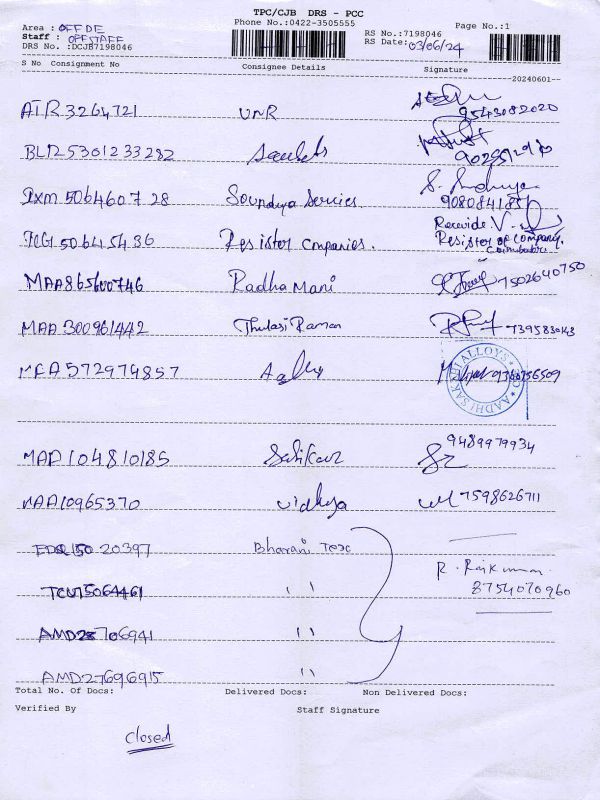 TPC/CJB DRS - PCC
Phone No.:0422-3505555
Page No.:1
Area : OFFDE
Staff : OFFSTAFF
DRS No. :DCJB7198046
RS No.:7198046
RS Date: 03/06/24
S No Consignment No Consignee Details Signature
20240601
ATR3264721 UNR 9543082020
BLR5301233282
PXM506460728 Soundya Services. 9080841851
TCG50645436 Resistor Companies. Receivide V.
Resistor of Company.
Coimbatore
MAA865600746 Radha Mani 7502640750
MAA300961442 Thulasi Raman
MEA572974857 ALLOYS AADHI SAKTHI 9360756509
MAD104810185 Sasikaur 9489979934
MAA10965370 Vidhya 7598626711
20397 Bharani Tex
R. Rajkumar
TCU15064461 ,, 8754070960
AMD28706941 ,,
AMD27696915 ,,
Total No. Of Docs: Delivered Docs: Non Delivered Docs:
Verified By Staff Signature
closed